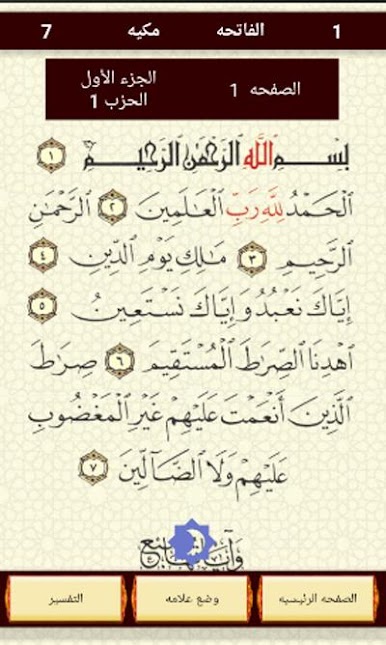 1 الفاتحه مكيه 7
الصفحه 1 الجزء الأول
الحزب 1
بِسْمِ اللَّهِ الرَّحْمَٰنِ الرَّحِيمِ ١
الْحَمْدُ لِلَّهِ رَبِّ الْعَالَمِينَ ٢ الرَّحْمَٰنِ
الرَّحِيمِ ٣ مَالِكِ يَوْمِ الدِّينِ ٤
إِيَّاكَ نَعْبُدُ وَإِيَّاكَ نَسْتَعِينُ ٥
اهْدِنَا الصِّرَاطَ الْمُسْتَقِيمَ ٦ صِرَاطَ
الَّذِينَ أَنْعَمْتَ عَلَيْهِمْ غَيْرِ الْمَغْضُوبِ
عَلَيْهِمْ وَلَا الضَّالِّينَ ٧
الصفحه الرئيسيه وضع علامه التفسير